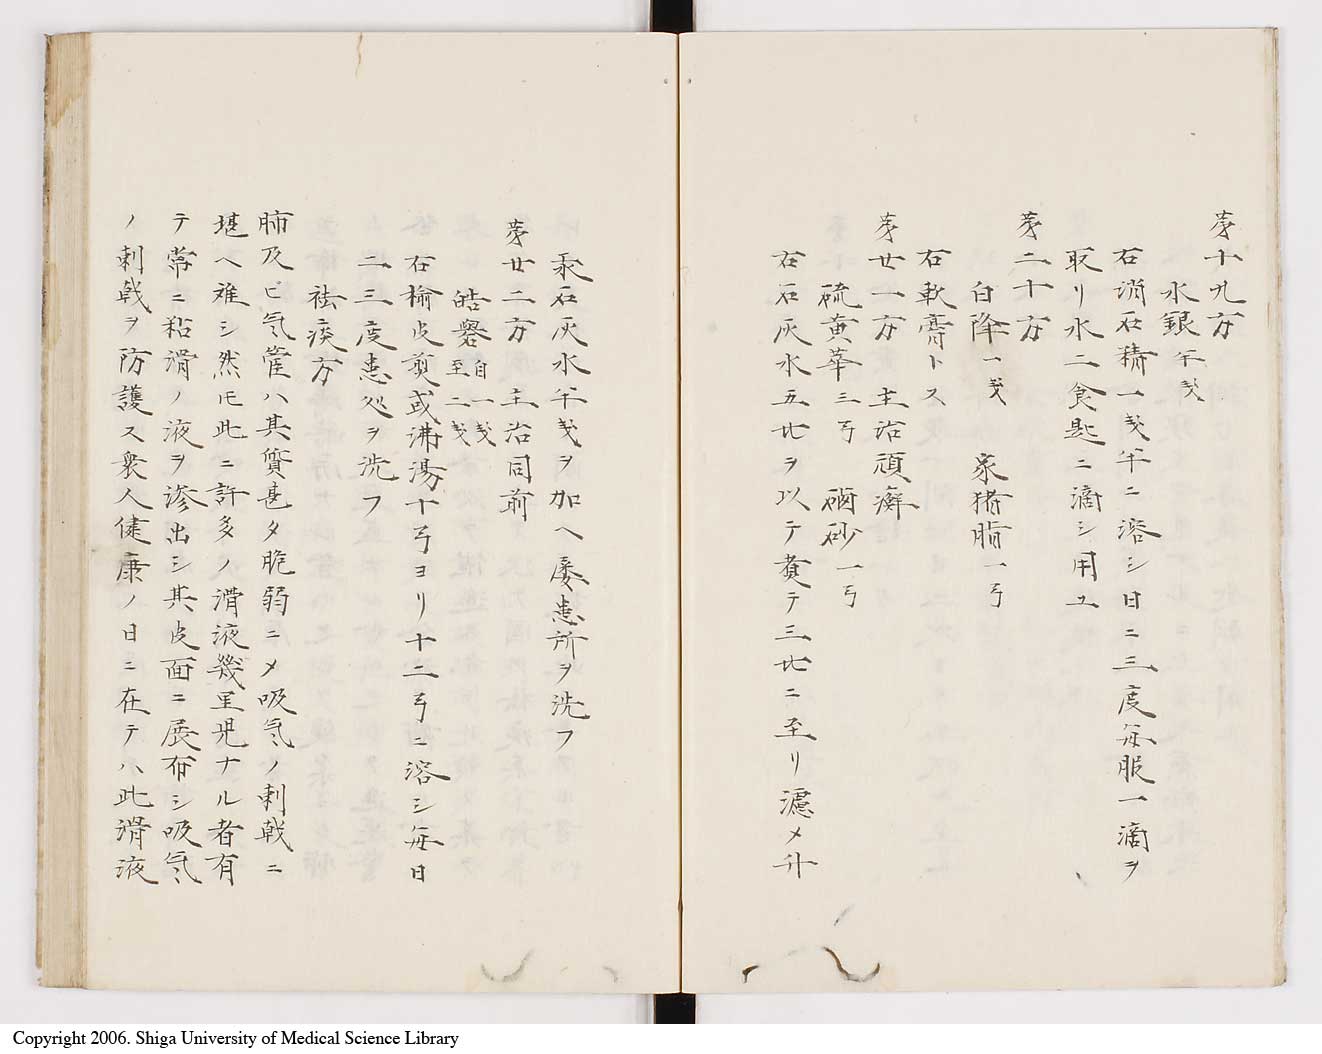 第十九方
水銀半戔
右消石精一戔半ニ溶シ日ニ三度毎服一滴ヲ
取リ水二食匙ニ滴シ用ユ
第二十方
白降一戔 家猪脂一弓
右軟膏トス
第廿一方主治頑癬
硫黄華三弓 硇砂一弓
右石灰水五㪷ヲ以テ煮テ三㪷ニ至リ濾メ升
汞石灰水半戔ヲ加ヘ屡患所ヲ洗フ
第廿二方 主治同前
皓礬自一戔至二戔
右楡皮煎或沸湯十弓ヨリ十二弓ニ溶シ毎日
二三度患処ヲ洗フ
祛痰方
肺及ヒ気管ハ其質甚タ脆弱ニメ吸気ノ刺戟ニ
堪ヘ難シ然𪜈此ニ許多ノ滑液幾里児ナル者有
テ常ニ粘滑ノ液ヲ滲出シ其皮面ニ展布シ吸気
ノ刺戟ヲ防護ス衆人健康ノ日ニ在テハ此滑液
Copyright 2006. Shiga University of Medical Science Library